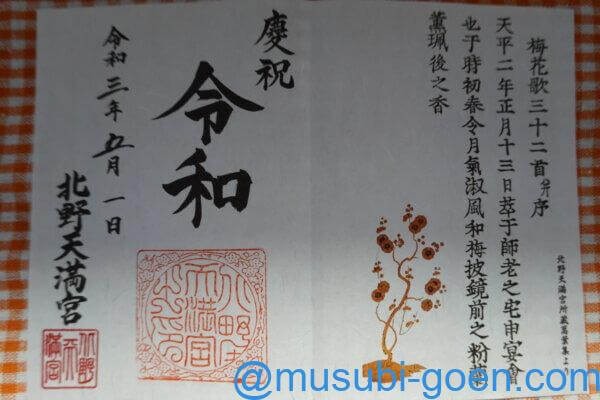 梅花歌三十二首并序
天平二年正月十三日萃于師老之宅申宴會
也于時初春令月氣淑風和梅披鏡前之粉蘭
薫珮後之香
北野天満宮所蔵萬葉集より
慶祝
令和
令和三年五月一日
北野天満宮
北野
天満宮
之印
北野
天
満宮
@musubi-goen.com